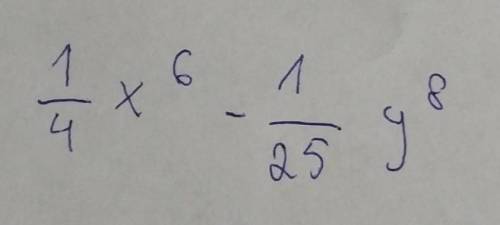 1/4 x^6 - 1/25 y^8